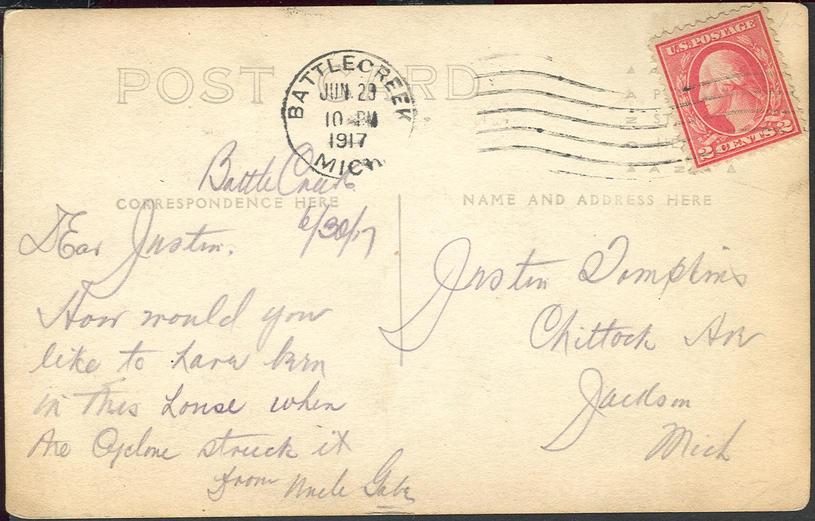 POST CARD
BATTLE CREEK
JUN 29
10 PM
1917
MICH
U.S. POSTAGE
2 CENTS 2
Battle Creek
6/30/17
CORRESPONDENCE HERE
NAME AND ADDRESS HERE
Dear Justin.
How would you
like to have been
in this house when
the Cyclone struck it
from Uncle Gabe
Justin Tompkins
Chittock Ave
Jackson
Mich